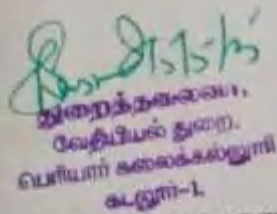 துறைத்தலைவர்,
வேதியியல் துறை,
பெரியார் கலைக்கல்லூரி
கடலூர்-1.